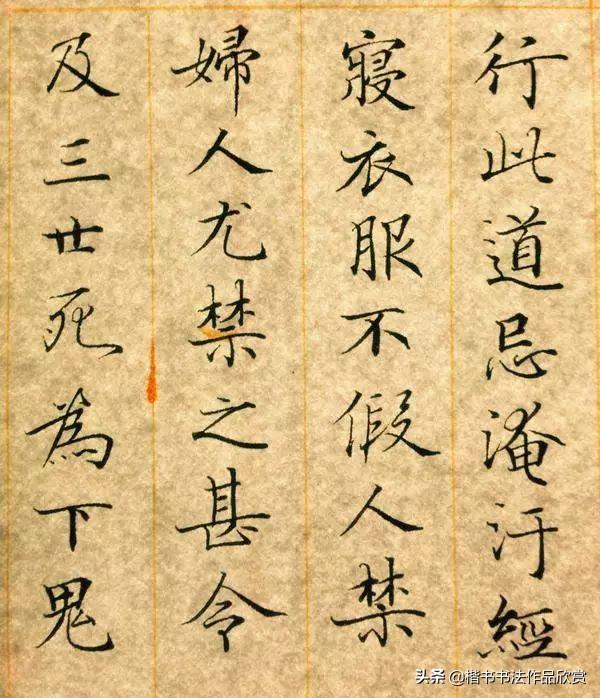 行此道忌淹汙經
寢衣服不假人禁
婦人尤禁之甚令
及三廿死為下鬼
头条 @楷书书法作品欣赏